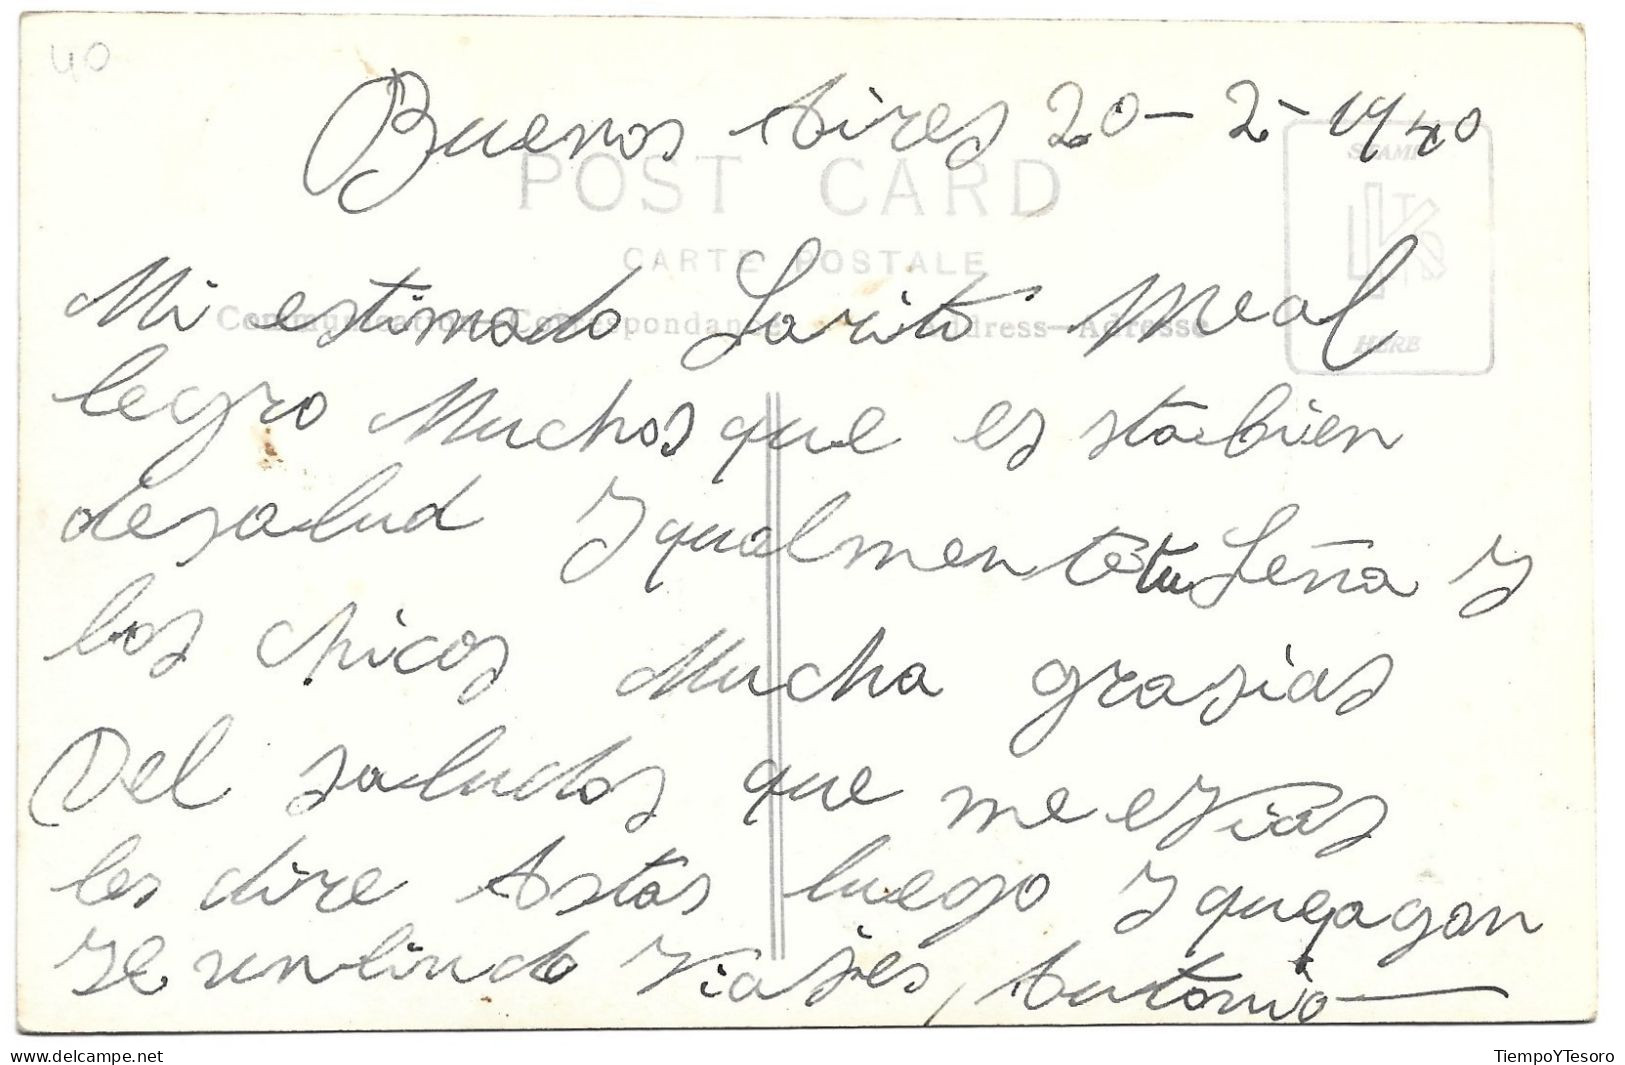 40
Buenos Aires 20-2-1940
POST CARD
STAMP
HERE
CARTE POSTALE
Communication—Correspondance
Address—Adresse
Mi estimado Sarito Meal
legro Muchos que es sta bien
de salud Y qualmente tu Seña y
los chicos Mucha grasias
Del saludos que me evias
les dire Astas luego Y que pagan
se un lindo Viajes, Antonio
TiempoYTesoro